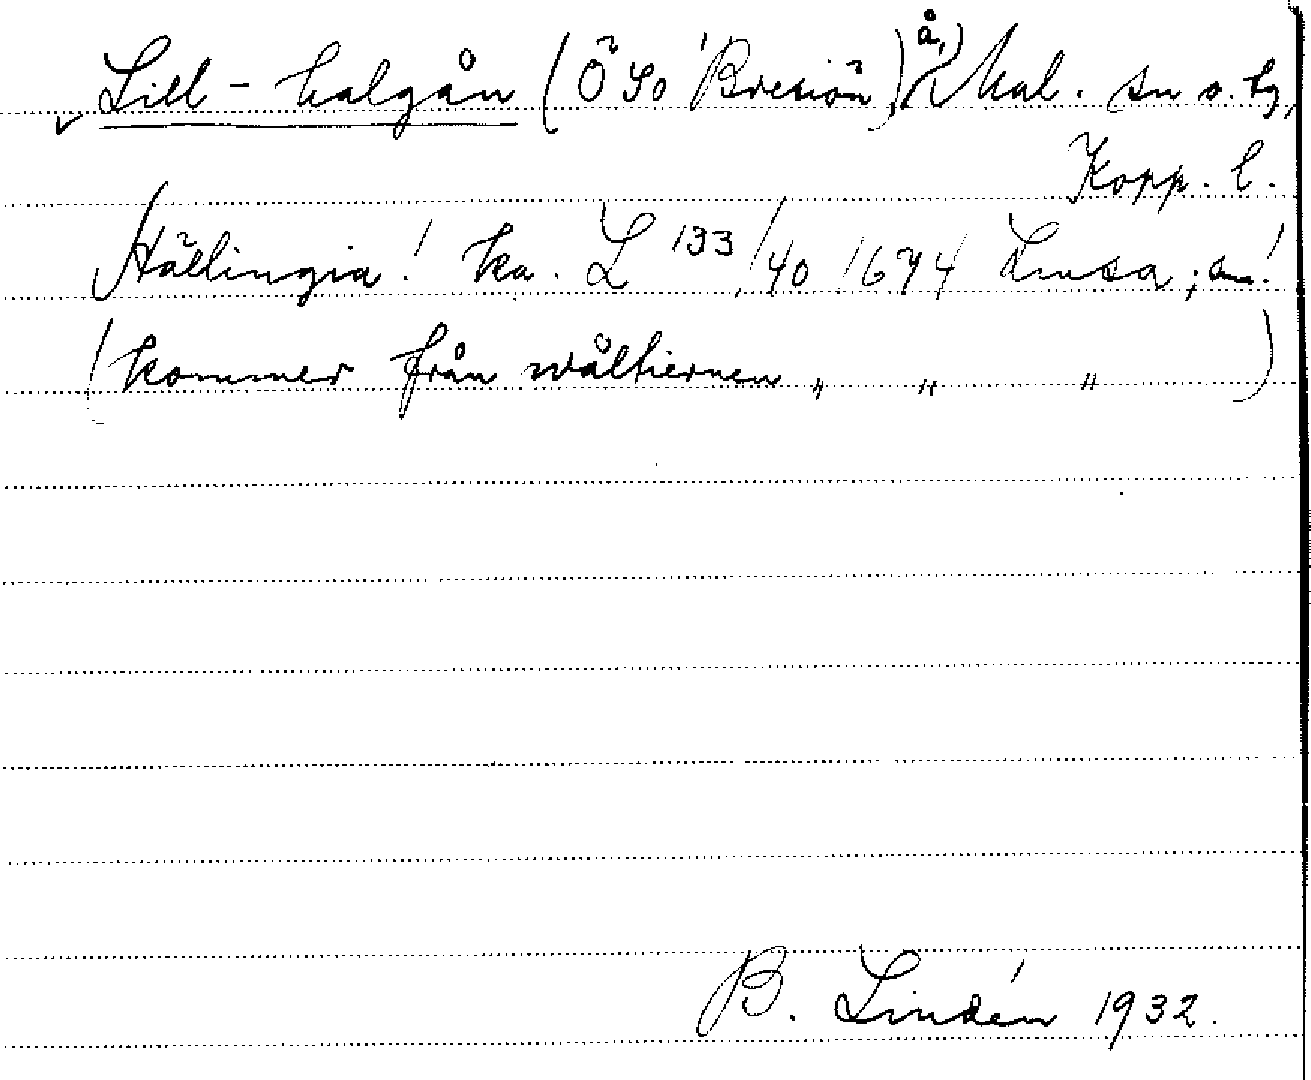 Lill-kalgån (Ö So Bresiön) å, Mal. sn o. hg,
Kopp. l.
Hällingia! ka. L 133/40 1674 Lmsa; sm!
(kommer från wåltiernen „ „ „ )
B. Lindén 1932.